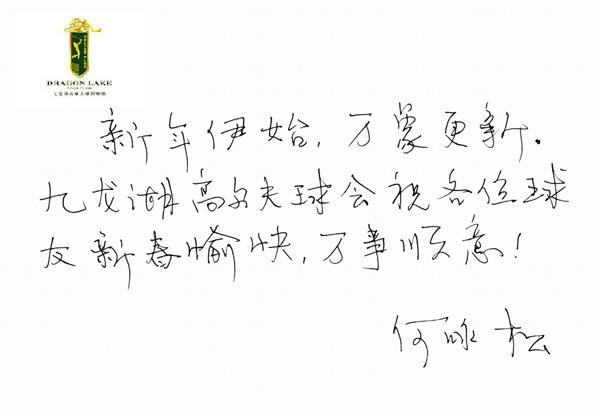 DRAGON LAKE
GOLF CLUB
九龙湖高尔夫球俱乐部
新年伊始，万象更新。
九龙湖高尔夫球会祝各位球
友新春愉快，万事顺意！
何咏松